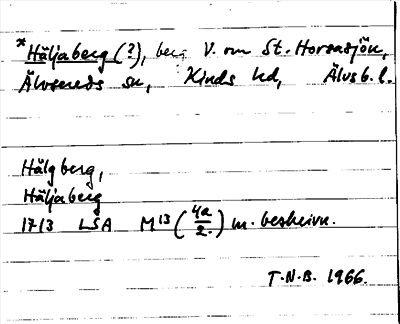 *Häljaberg (?), berg V. om St. Horsasjön,
Älvsereds sn, Kinds hd, Älvsb. l.
Hälgberg,
Häljaberg
1713 LSA M¹³ (4a/2.) m. beskrivn.
T.N.B. 1966.